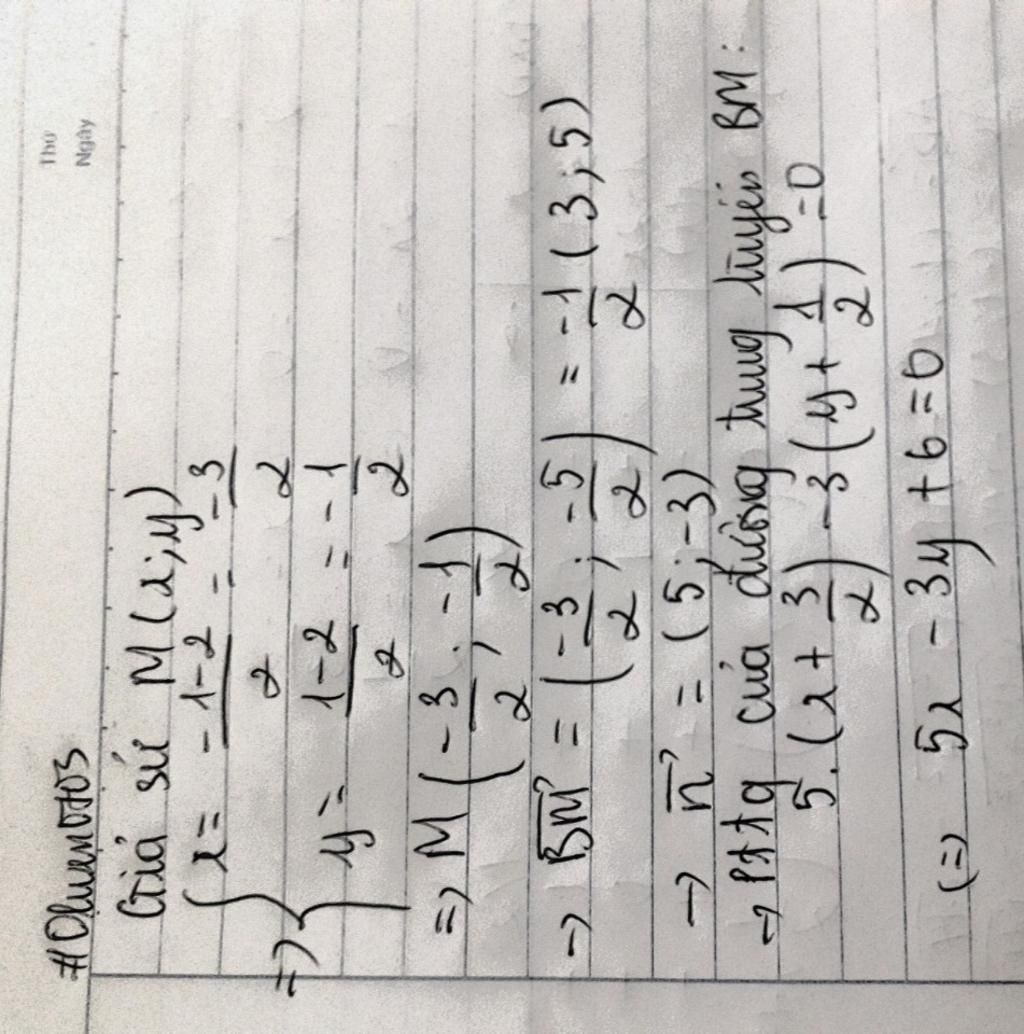 Thứ
Ngày
#Olwen0703
Giả sử M(x;y)
=> { x = -1-2/2 = -3/2
y = 1-2/2 = -1/2
=> M(-3/2; -1/2)
→ BM⃗ = (-3/2; -5/2) = -1/2 (3; 5)
→ n⃗ = (5; -3)
→ pttq của đường trung tuyến BM:
5.(x + 3/2) - 3(y + 1/2) = 0
(=) 5x - 3y + 6 = 0